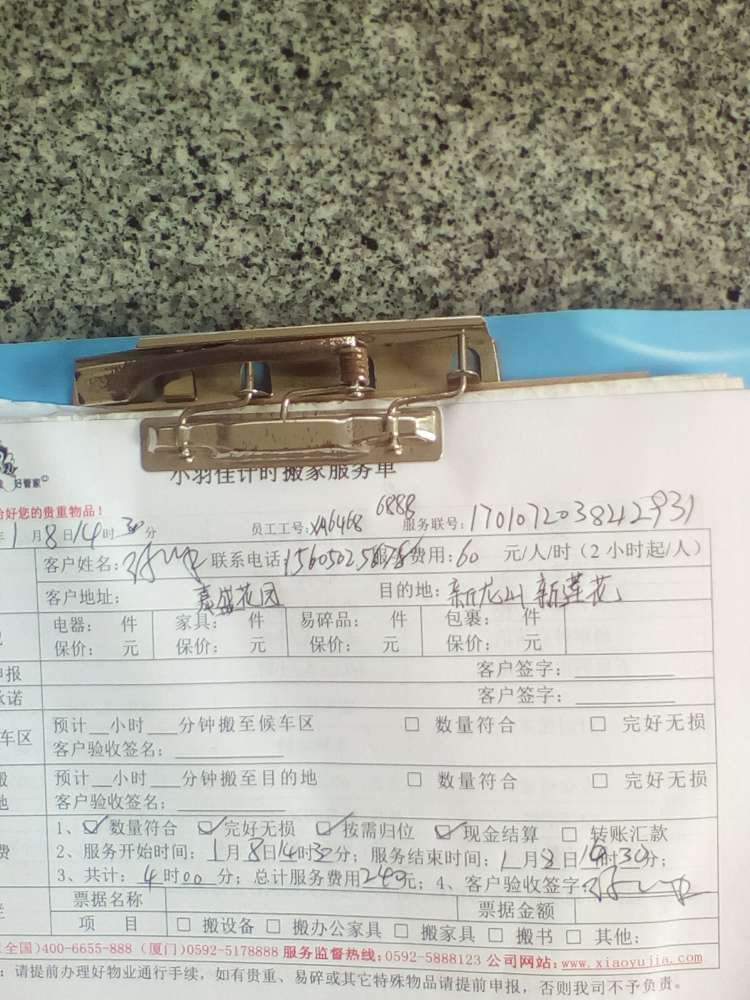 好管家
小羽佳计时搬家服务单
好您的贵重物品！
1月8日14时30分 员工工号：XA6468 6888 服务联号：17010720384 2931
客户姓名： 联系电话：服务费用：60 元/人/时（2小时起/人）
客户地址： 嘉盛花园 目的地：新龙山 新莲花
电器： 件 家具： 件 易碎品： 件 包裹： 件
保价： 元 保价： 元 保价： 元 保价： 元
申报 客户签字：
承诺 客户签字：
车区 预计__小时___分钟搬至候车区 □ 数量符合 □ 完好无损
客户验收签名：
预计__小时___分钟搬至目的地 □ 数量符合 □ 完好无损
地 客户验收签名：
1、☑数量符合 ☑完好无损 ☑按需归位 ☑现金结算 □ 转账汇款
费 2、服务开始时间：1月8日14时30分；服务结束时间：1月8日 时30分；
3、共计：4时00分；总计服务费用240元；4、客户验收签字
票据名称 票据金额
项 目 □ 搬设备 □ 搬办公家具 □ 搬家具 □ 搬书 □ 其他：
全国）400-6655-888（厦门）0592-5178888 服务监督热线：0592-5888123 公司网站：www.xiaoyujia.com
：请提前办理好物业通行手续，如有贵重、易碎或其它特殊物品请提前申报，否则我司不予负责。